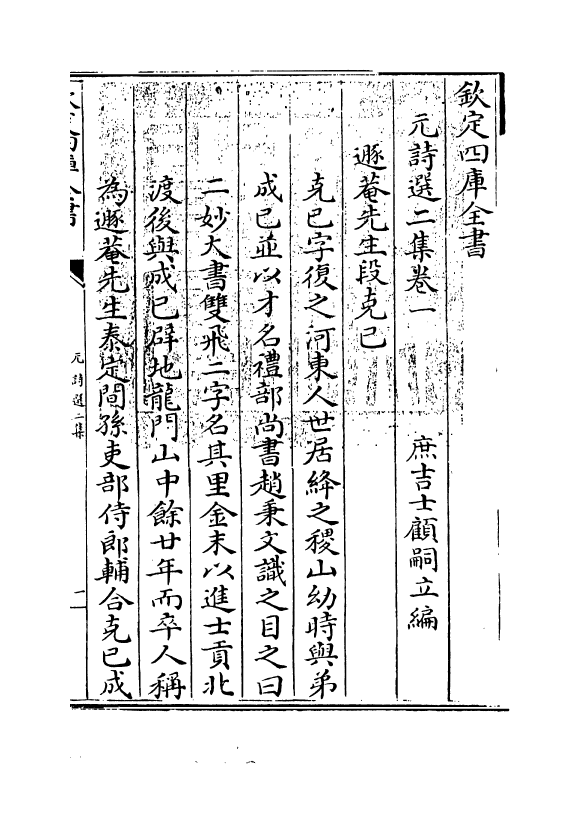 欽定四庫全書
元詩選二集卷一 庶吉士顧嗣立編
遯菴先生段克己
克已字復之河東人世居絳之稷山幼時與弟
成已並以才名禮部尚書趙秉文識之目之曰
二妙大書雙飛二字名其里金末以進士貢北
渡後與成已辟地龍門山中餘廿年而卒人稱
為遯菴先生泰定間孫吏部侍郎輔合克已成
元詩選二集